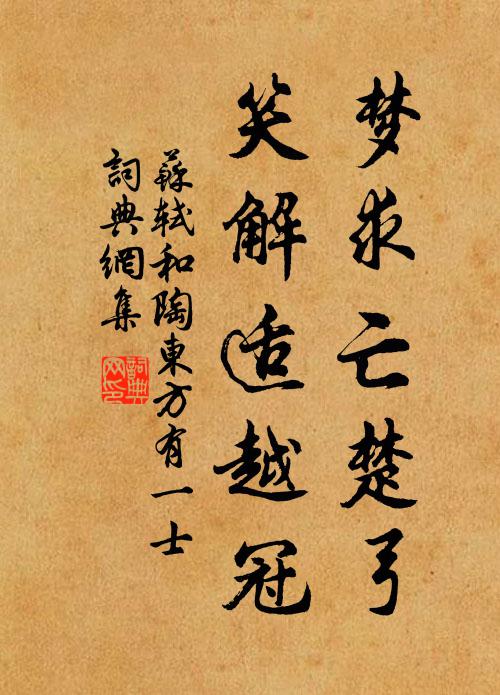 梦求亡楚弓
笑解适越冠
蘇軾和陶東方有一士
詞典網集
詞典
网印